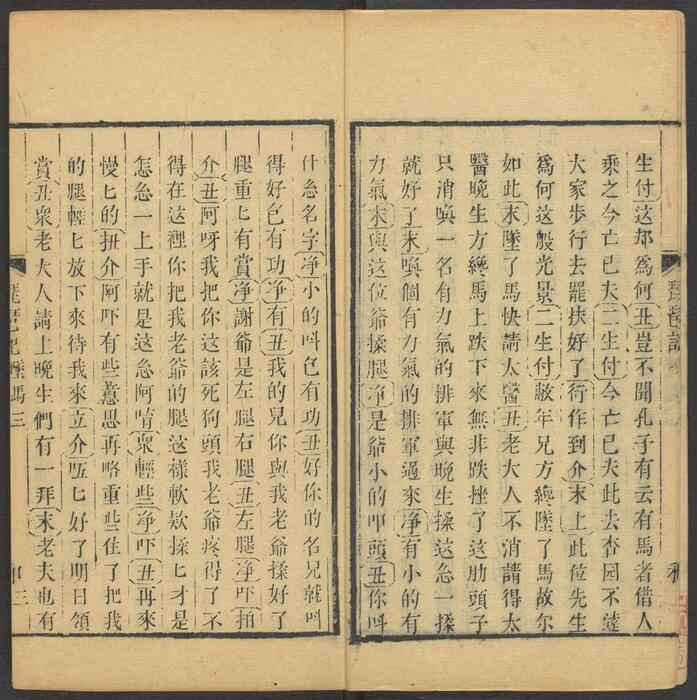 生付这却爲何丑豈不聞孔子有云有馬者借人
乘之今亡已夫二生付今亡已夫此去杏园不遠
大家步行去罷扶好了行作到介末上此位先生
爲何这般光景二生付敝年兄方纔墜了馬故尔
如此末墜了馬快請太醫丑老大人不消請得太
醫晚生方纔馬上跌下來無非跌挫了这肋頭子
只消喚一名有力氣的排軍與晚生揉这急一揉
就好了末喚個有力氣的排軍過來净有小的有
力氣末與这位爺揉腿净是爺小的叩頭丑你呌
什急名字净小的呌色有功丑好你的名兒就呌
得好色有功净有丑我的兒你與我老爺揉好了
腿重匕有賞净謝爺是左腿右腿丑左腿净吓拍
介丑阿呀我把你这該死狗頭我老爺疼得了不
得在这裡你把我老爺的腿这樣軟欵揉匕才是
怎急一上手就是这急阿唷衆輕些净吓丑再來
慢匕的扭介阿吓有些意思再略重些住了把我
的腿輕匕放下來待我來立介匕好了明日領
賞丑衆老大人請上晚生們有一拜末老夫也有
琵琶記
琵琶記 墜馬 三